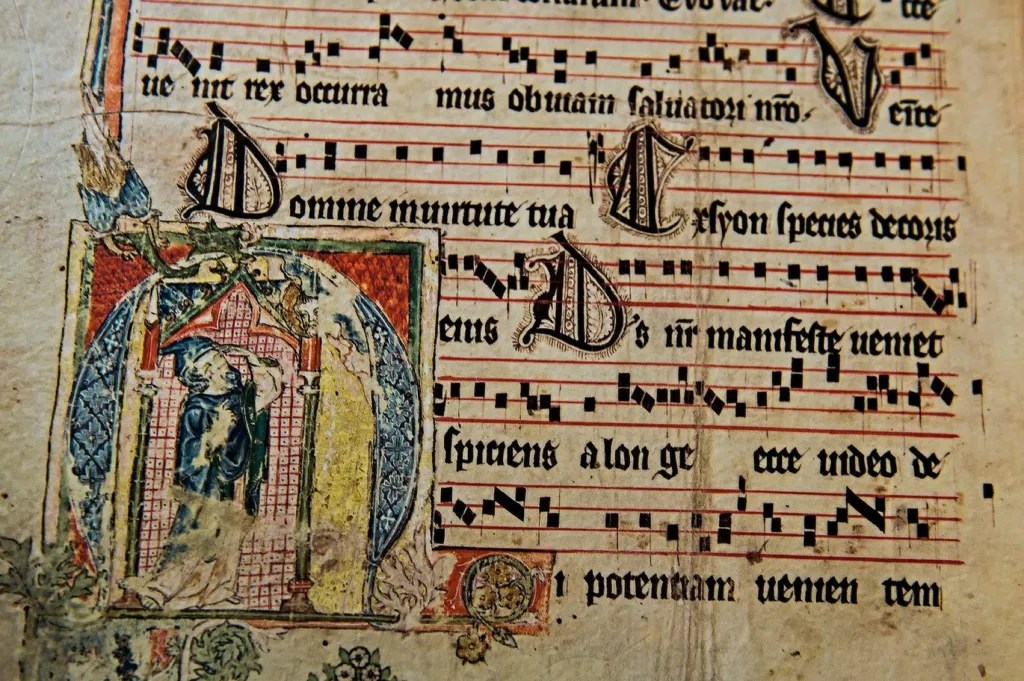 Euouae.
ue nit rex occurra mus obuiam saluatori nr̄o. Ven̄te
Domine inuirtute tua Exsyon species decoris
eius D's nr̄ manifeste ueniet
Aspiciens alon ge ecce uideo de
i potentiam uenien tem